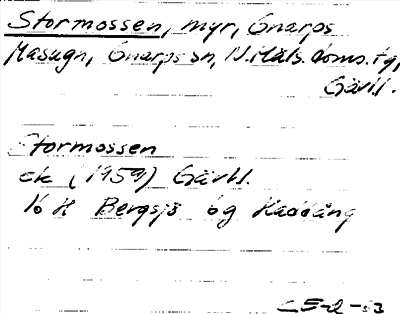 Stormossen, myr, Gnarps
Masugn, Gnarps sn, N. Häls. doms. tg,
Gävl.
Stormossen
ek (1959) Gävbl.
16 H Bergsjö 6g Haddång